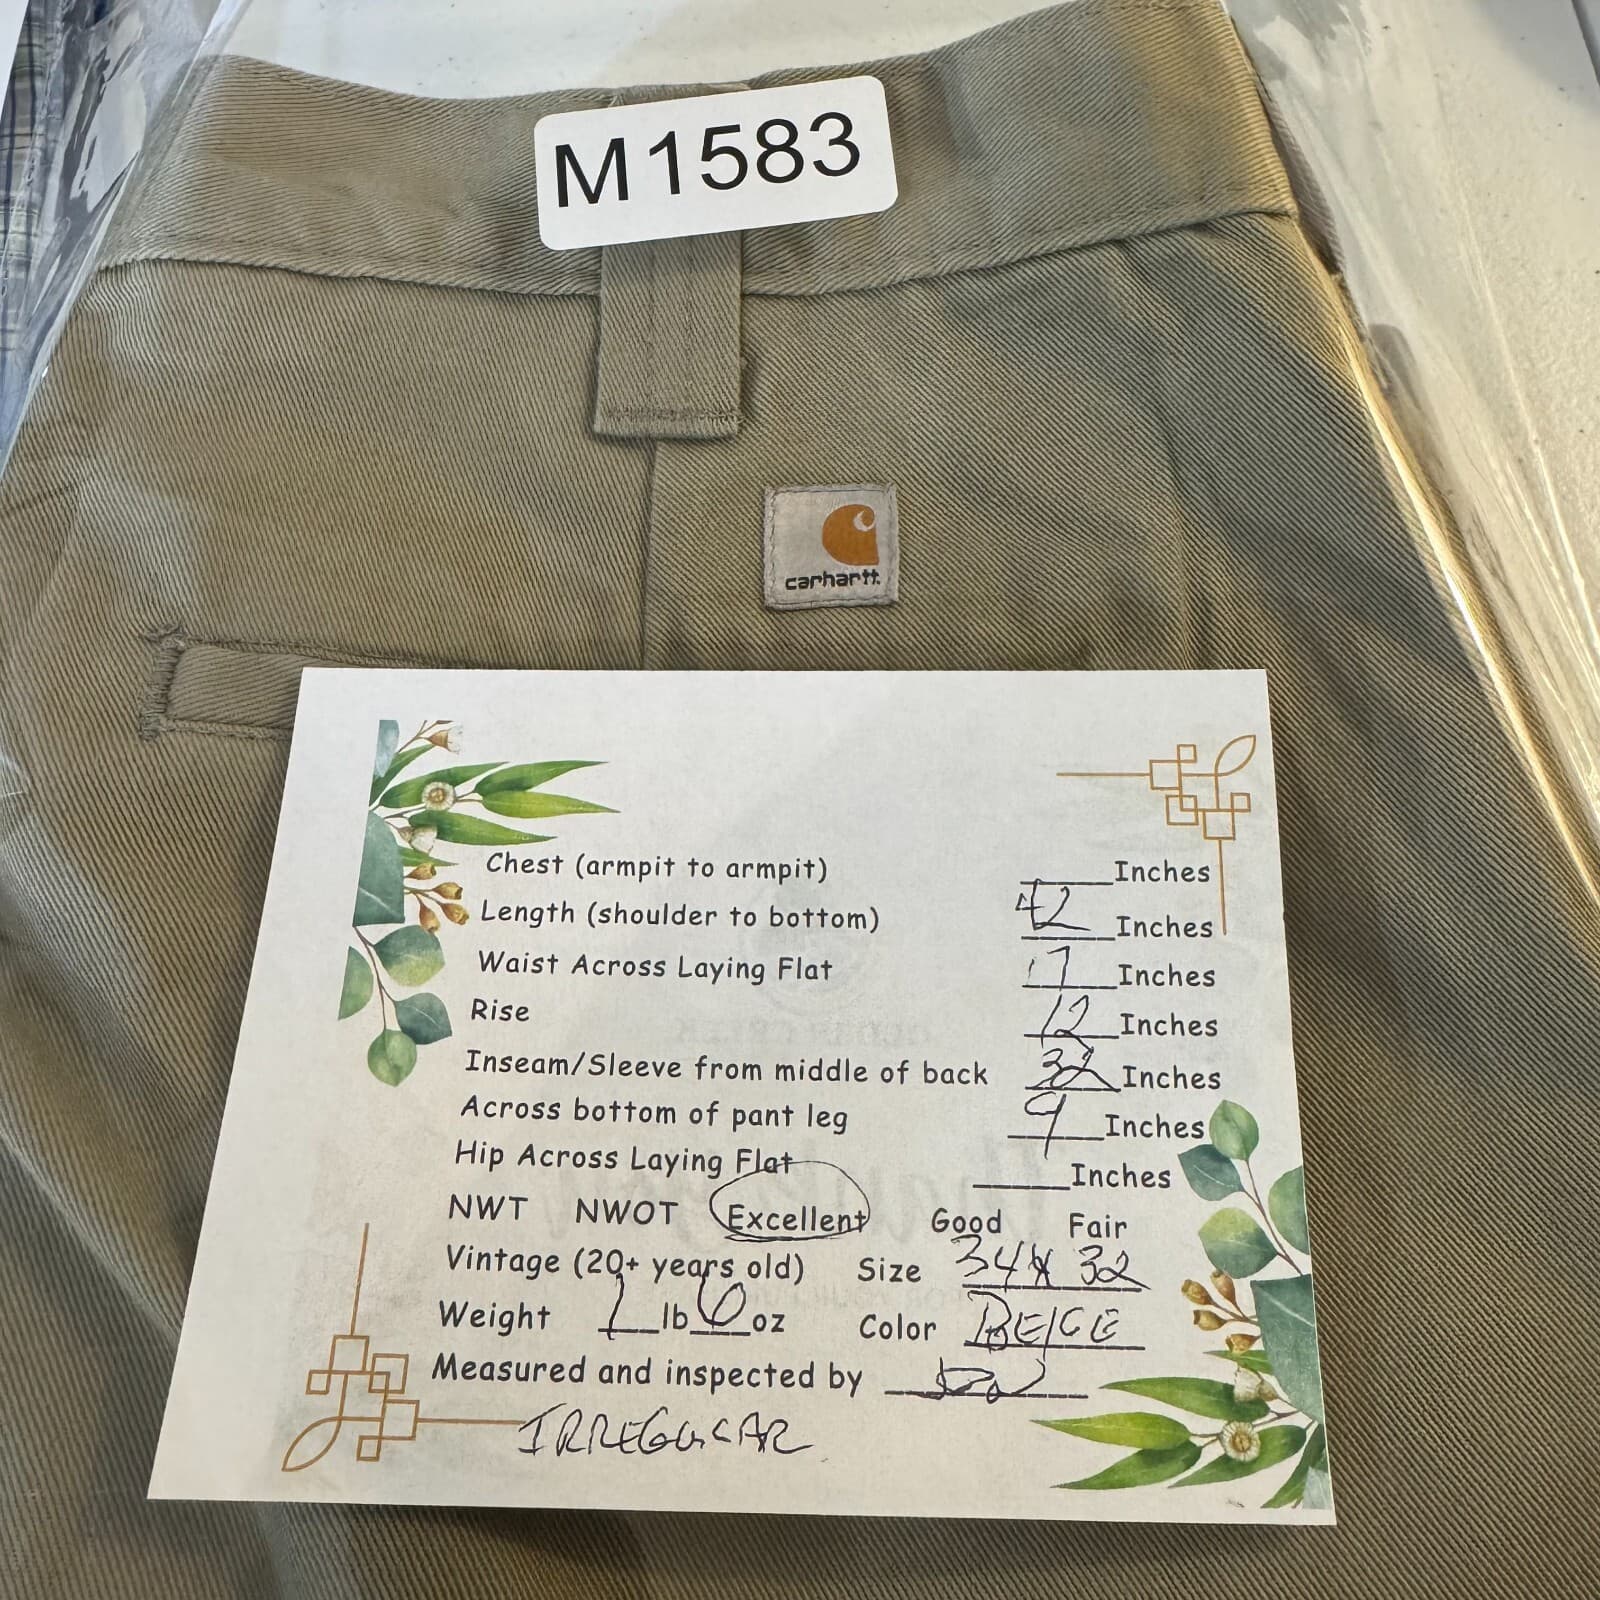 M1583
carhartt.
Chest (armpit to armpit) ____ Inches
Length (shoulder to bottom) 42 Inches
Waist Across Laying Flat 17 Inches
Rise 12 Inches
Inseam/Sleeve from middle of back 32 Inches
Across bottom of pant leg 9 Inches
Hip Across Laying Flat ____ Inches
NWT NWOT Excellent Good Fair
Vintage (20+ years old) Size 34 x 32
Weight 1 lb 6 oz Color BEIGE
Measured and inspected by
IRREGULAR